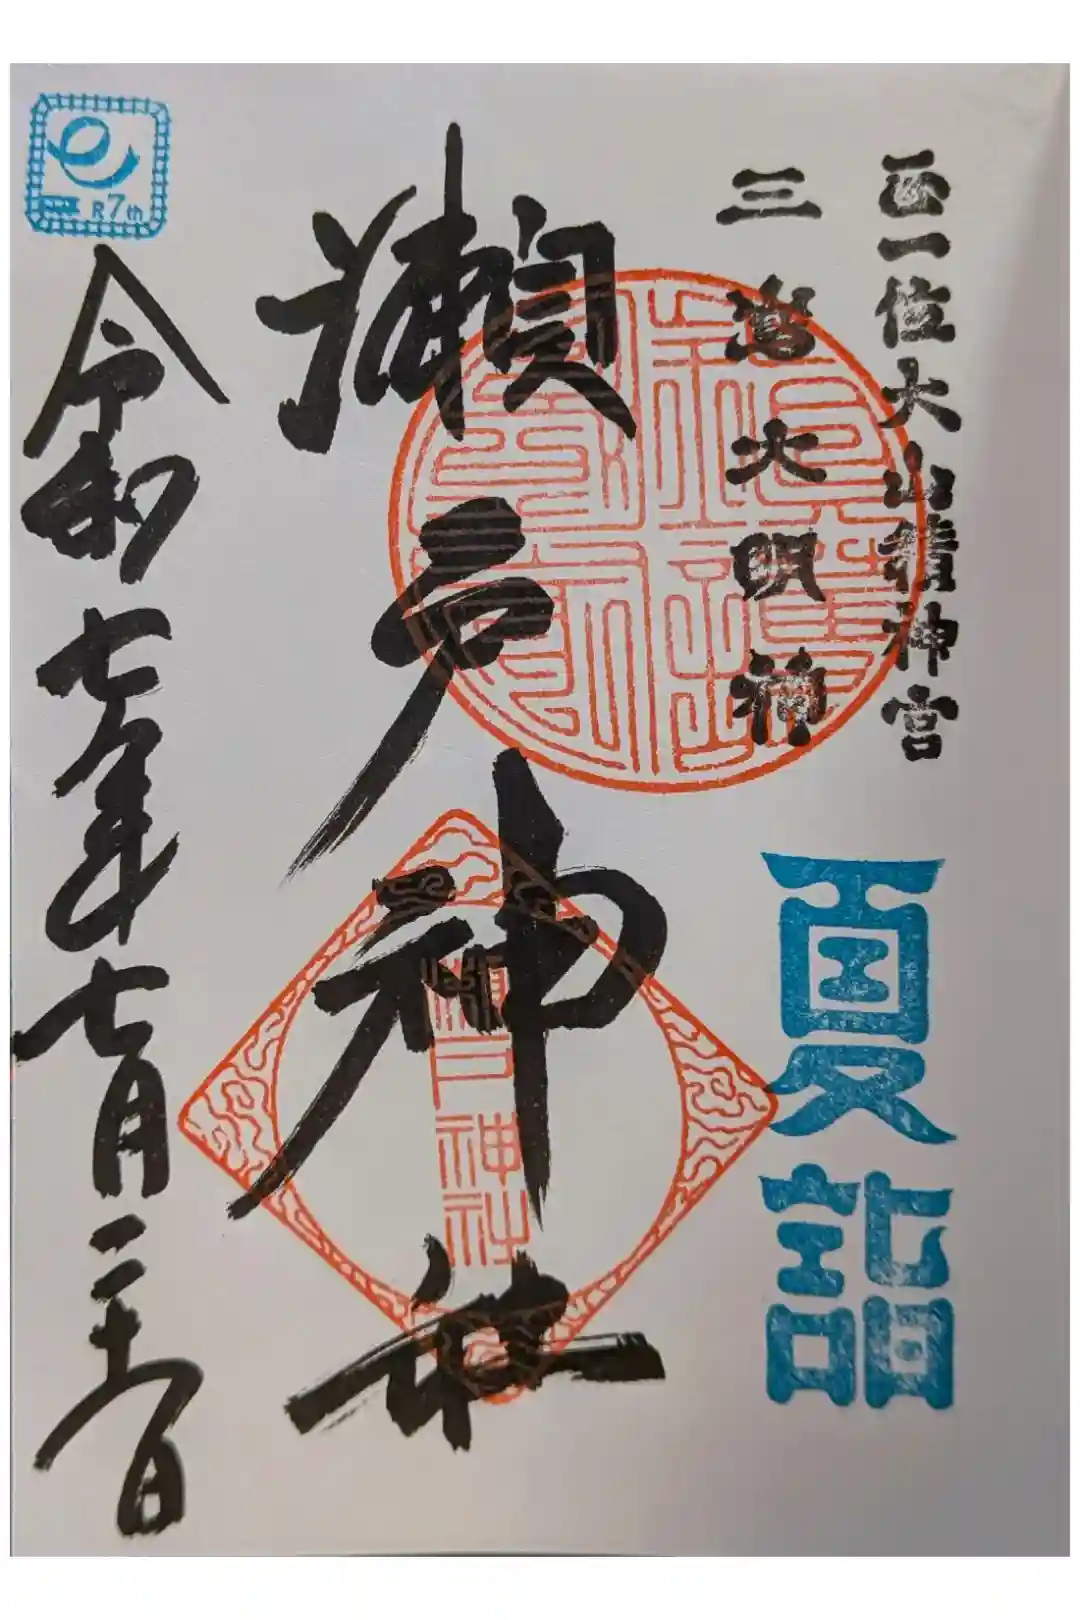 正一位大山積神宮
三嶌大明神
夏詣
瀬戸神社
瀬戸神社
令和七年七月二十日
R7th